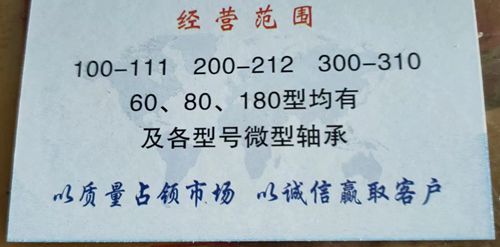 经营范围
100-111 200-212 300-310
60、80、180型均有
及各型号微型轴承
以质量占领市场 以诚信赢取客户